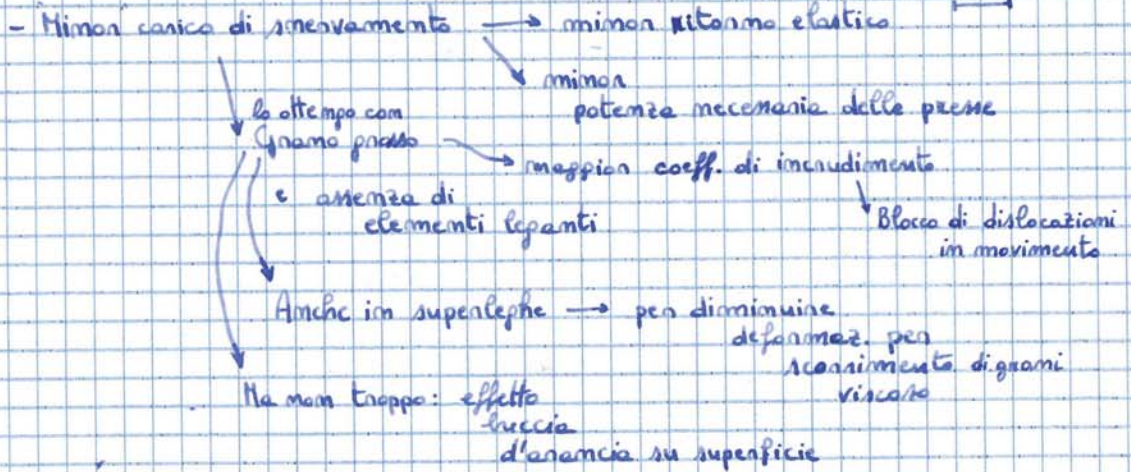 - Minor carico di snervamento → minor ritorno elastico
minor
potenza necessaria delle presse
lo ottengo con
Grano grosso → maggior coeff. di incrudimento
e assenza di
elementi leganti
Blocco di dislocazioni
in movimento
Anche in superleghe → per diminuire
deformaz. per
scorrimento di grani
viscoso
Ma non troppo: effetto
buccia
d'arancia su superficie